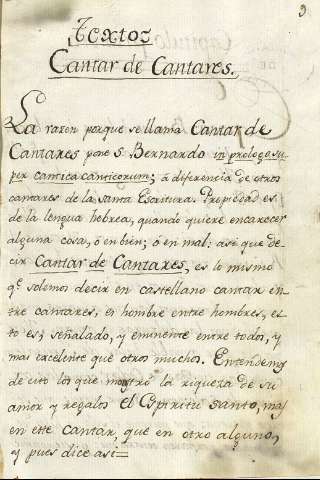 9
Textos
Cantar de Cantares.
La razon porque se llama Cantar de
Cantares pone S. Bernardo in prologo, su-
per cantica canticorum; á diferencia de otros
cantares de la Santa Escritura. Propiedad es
de la lengua hebrea, quando quiere encarecer
alguna cosa, ó en bien; ó en mal: asi que de-
cir Cantar de Cantares, es lo mismo
qe. solemos decir en castellano cantar en-
tre cantares, es hombre entre hombres, es-
to es; señalado, y eminente entre todos, y
mas excelente que otros muchos. Entendemos
de esto los que mostró la riqueza de su
amor y regalos el Espiritu Santo, mas
en este cantar, que en otro alguno,
y pues dice asi=